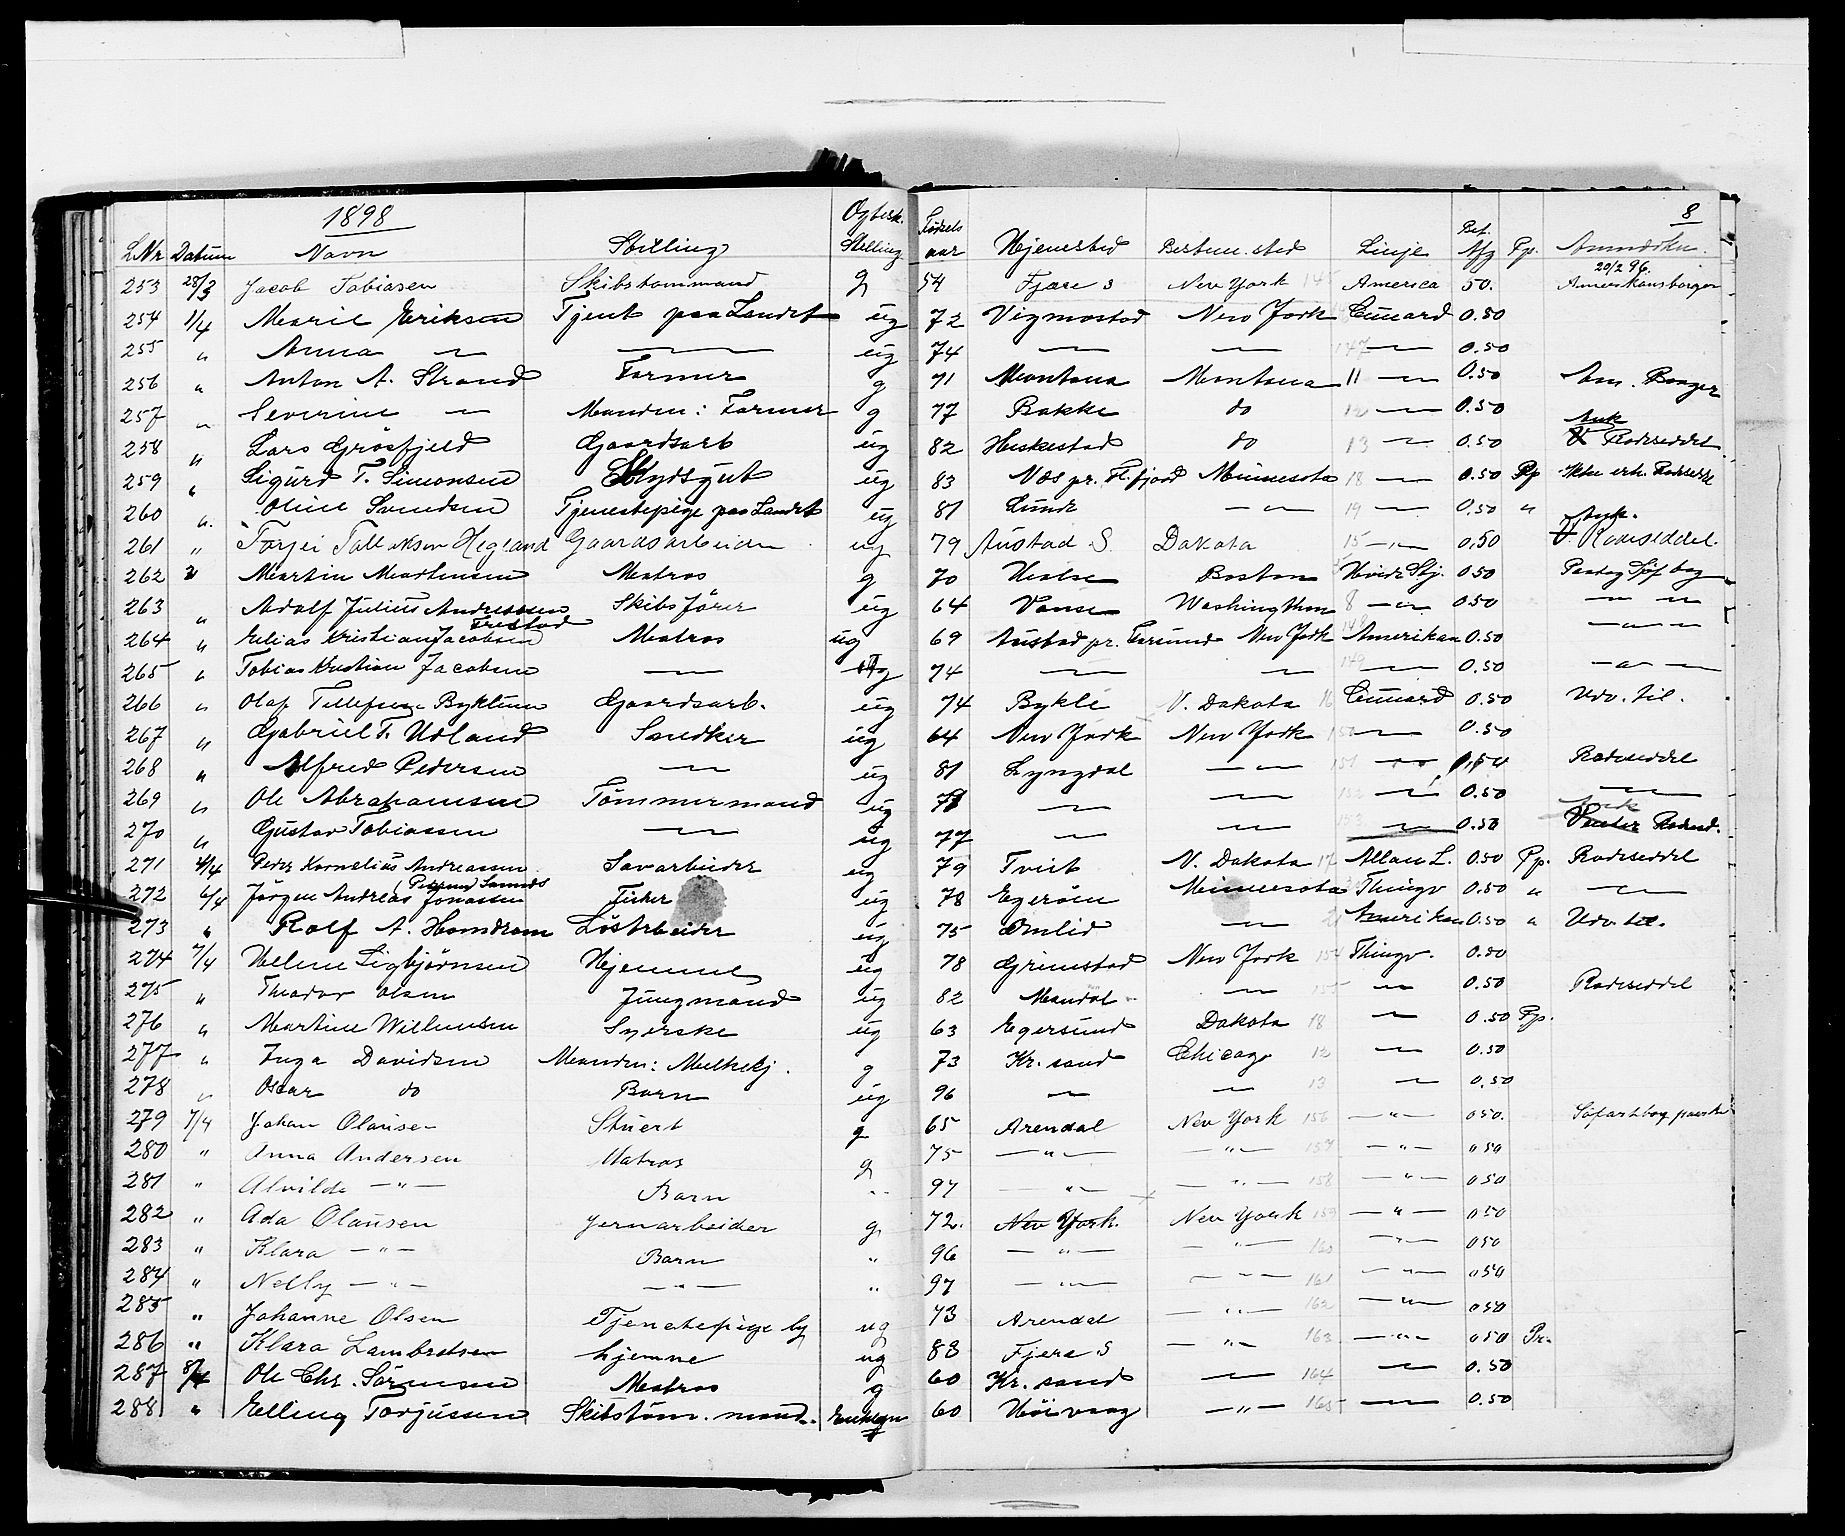 1898 8
L Nr Datum Navn Stilling Ægtesk. Stilling Fødsels aar Hjemsted Bestem. sted Linje Bet. Afg Pp. Anmærkn.
253 28/3 Jacob Tobiasen Skibstømmand g 54 Fjære s New York America 50. 20/2 96. Amerikansborger
254 1/4 Marie Eriksen Tjent paa Landet ug 72 Vigmostad New York Cunard 0.50
255 " Anna — — ug 74 — — 147 — 0.50
256 " Anton A. Strand Farmer g 71 Montana Montana 11 — 0.50 Am. Borger
257 " Severine — Manden: Farmer g 77 Bakke do 12 — 0.50
258 " Lars Grøsfjeld Gaardsarb ug 82 Heskestad do 13 — 0.50 Ank Rodeseddel
259 " Sigurd T. Simonsen ug 83 Næs pr. Fl.fjord Minnesota 18 — 0.50 Pp Ikke erh. Rodesedel
260 " Oline Svendsen Tjenestepige paa Landet ug 81 Lunde — " — 19 — 0.50 "
261 " Torjei Tallaksen Hegland Gaardsarbeider ug 79 Austad S. Dakota 15 — " — 0,50 Ank. Rodeseddel.
262 " Martin Martinsen Matros g 70 Halse Boston Hvide Stj. 0.50 Søf bog
263 " Adolf Julius Andreassen Skibsfører ug 64 Vanse Washington 8 — " — 0.50 — " —
264 " Elias Kristian Jacobsen Trestad Matros ug 69 Austad pr. Farsund New York 148 Amerikan 0.50 — " —
265 " Tobias Kristian Jacobsen — ug 74 — — 149 — 0.50 — " —
266 " Olaf Tellefsen Byklum Gaardsarb. ug 74 Bykle N. Dakota 16 Cunard 0.50 Udv. til.
267 " Gabriel T. Udland Snedker ug 64 New York New York 150 — 0.50
268 " Alfred Pedersen — ug 81 Lyngdal — " — 151 — " — Rodeseddel
269 " Ole Abrahamsen Tømmermand ug 78 — — 152 — 0.50 —
270 " Gustav Tobiassen — ug 77 — — 153 — 0.50 Rodesed.
271 4/4 Peder Kornelius Andreassen Savarbeider ug 79 Tveit N. Dakota 17 Allan L. 0.50 Pp. Rodeseddel
272 6/4 Jørgen Andreas Jonassen Fisker ug 78 Egerøen Minnesota Thingv 0.50 " —
273 " Rolf A. Homdrom Løsarbeider ug 75 Omlid — 21 Amerikan 0.50 " Udv til.
274 7/4 Helene Sigbjørnsen Hjemme ug 78 Grimstad New York 154 Thingv. 0.50
275 " Theodor Olsen Jungmand ug 82 Mandal — 155 — 0.50 Rodeseddel
276 " Martine Willumsen Syerske ug 63 Egersund Dakota 18 — 0.50 Pp.
277 " Inga Davidsen Manden: Melhekj. g 73 Kr. sand Chicago 12 — 0.50
278 " Oscar do Barn ug 96 — — 13 — 0.50
279 7/4 Johan Olausen Stuert g 65 Arendal New York 156 — " — 0 50.
280 " Anna Andersen Matros g 75 — " — — " — 157 — " — 0 50
281 " Alvilde — " — Barn " 97 — " — — " — 158 — " — 0 50
282 " Ada Olausen Jernarbeider g 72. New York. New York 159 — " — 0 50
283 " Klara — " — Barn " 96 — " — — " — 160 — " — 0 50
284 " Nelly — " — — " — " 97 — " — — " — 161 — " — 0 50
285 " Johanne Olsen Tjenestepige by ug 73 Arendal — " — 162 — " — 0 50
286 " Klara Lambretsen hjemne ug 83 Fjære S — " — 163 — " — 0 50 Pr.
287 8/4 Ole Chr. Sørensen Matros g 60 Kr. sand — 164 — 0.50
288 " Elling Torjussen Skibstøm. mand. Enkegm 60 Høivaag — " — 165 — 0.50